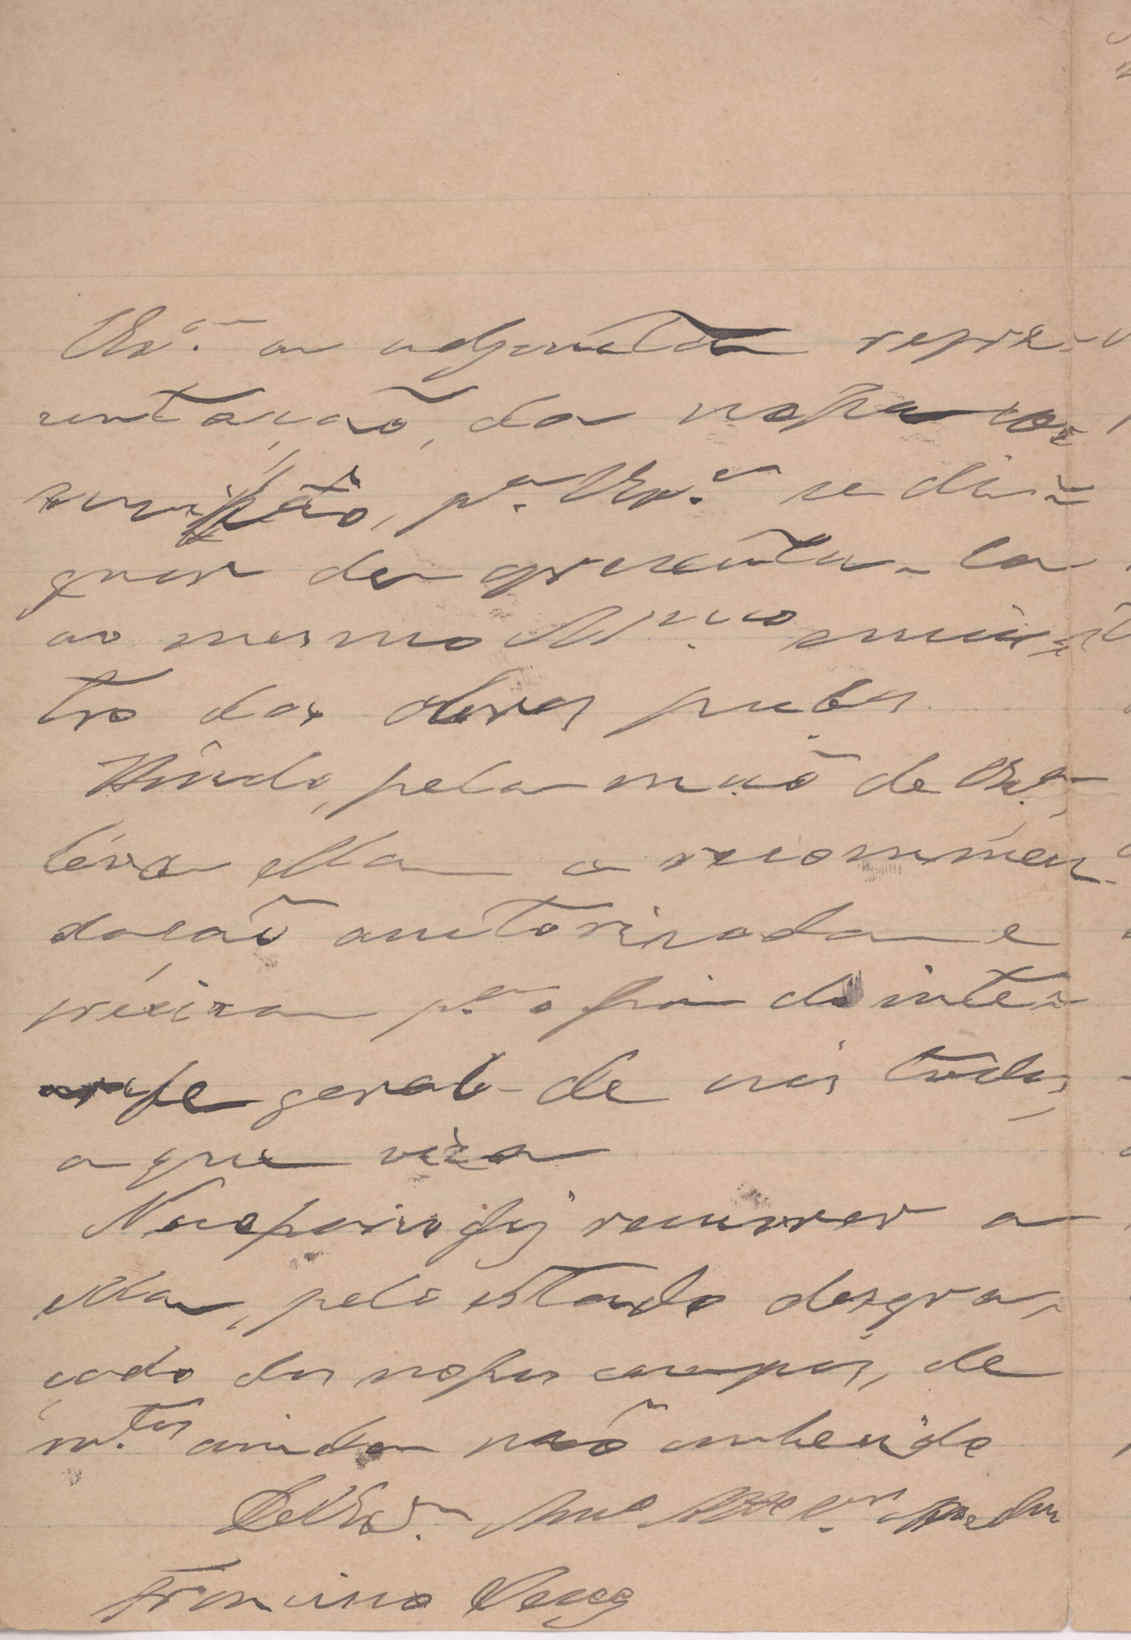 VEx.ª a adjunta repre-
sentação, da nossa co-
missão, p.ª VEx.ª se di-
gnar de apresenta-la
ao mesmo Ill.mo minis-
tro das obras pubs
Hindo, pela mão de VEx.ª,
léva ella a recommen-
dação autorisada e
préciza p.ª o fim do inte-
resse geral de nós todos,
a que viza
Necessario foi recorrer a
ella, pelo estado desgra-
çado dos nossos campos, de
m.tos ainda não conhecido
De VEx.ª
Francisco